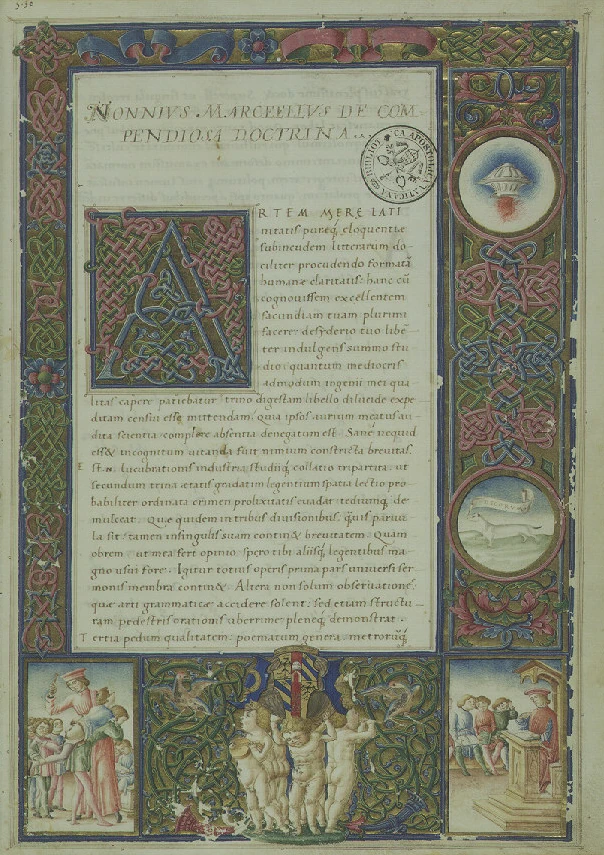 NONNIVS MARCELLVS DE COM-
PENDIOSA DOCTRINA
ARTEM MERE LATI
nitatis pureq; eloquentie
subincudem litterarum do-
ciliter procudendo formatā
humanę claritatis: hanc cū
cognouissem excellentem
facundiam tuam plurimi
facere: desyderio tuo libē-
ter indulgens summo stu
dio: quantum mediocris
admodum ingenii mei qua
litas capere patiebatur trino digestam libello dilucide expe
ditam censui esse mittendam, quia ipsos aurium meatus au-
dita scientia complere absentia denegatum est. Sane nequid
ess& incognitum uitanda sunt nimium constricta breuitas.
Est lucubrationis industria studiiq; collatio tripartita ut
secundum trina ętatis gradatim legentium spatia lectio pro
babiliter ordinata crimen prolixitatis euadat tediumq; de-
mulceat. Quae quidem in tribus diuisionibus, quis parua
la sit: tamen in singulis suam contin& breuitatem. Quam
obrem ut mea fert opinio spero tibi aliisq; legentibus ma-
gno usui fore. Igitur totius operis prima pars uniuersi ser
monis membra contin&. Altera non solum obseruationes:
quae arti grammaticę accidere solent: sed etiam structu-
ram pedestris orationis uberrime pleneq; demonstrat.
Tertia pedum qualitatem: poematum genera: metrorumq;
BIBLIOTECA APOSTOLICA VATICANA